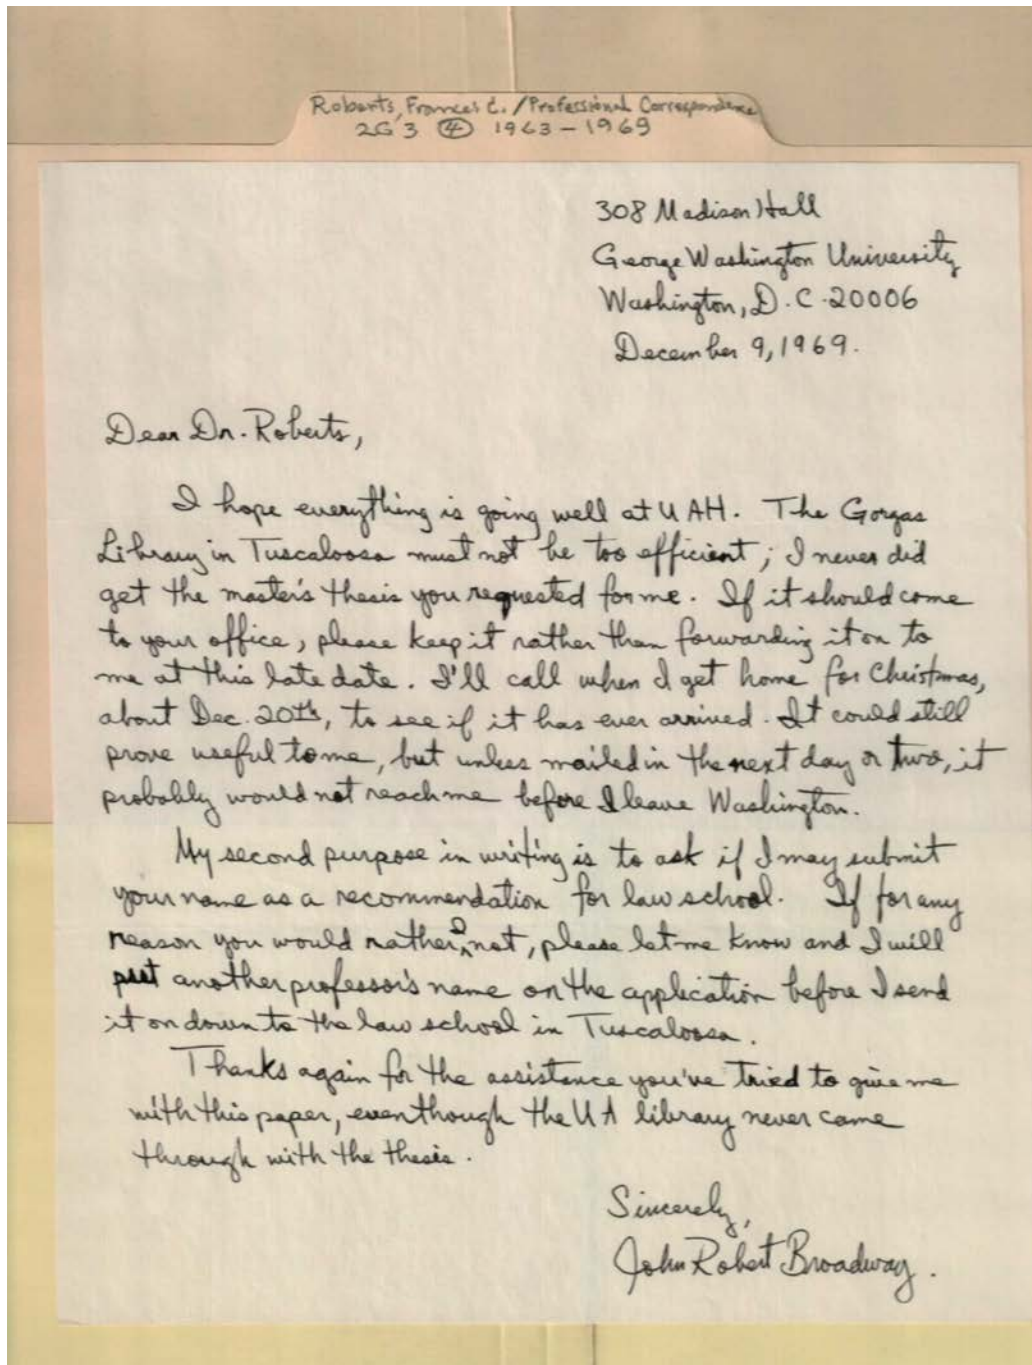 Roberts, Frances C. / Professional Correspondence
2G 3 ④ 1963-1969
308 Madison Hall
George Washington University
Washington, D.C. 20006
December 9, 1969.
Dear Dr. Roberts,
I hope everything is going well at UAH. The Gorgas
Library in Tuscaloosa must not be too efficient; I never did
get the master's thesis you requested for me. If it should come
to your office, please keep it rather than forwarding it on to
me at this late date. I'll call when I get home for Christmas,
about Dec. 20th, to see if it has ever arrived. It could still
prove useful to me, but unless mailed in the next day or two, it
probably would not reach me before I leave Washington.
My second purpose in writing is to ask if I may submit
your name as a recommendation for law school. If for any
reason you would rather I not, please let me know and I will
put another professor's name on the application before I send
it on down to the law school in Tuscaloosa.
Thanks again for the assistance you've tried to give me
with this paper, even though the UA library never came
through with the thesis.
Sincerely,
John Robert Broadway.